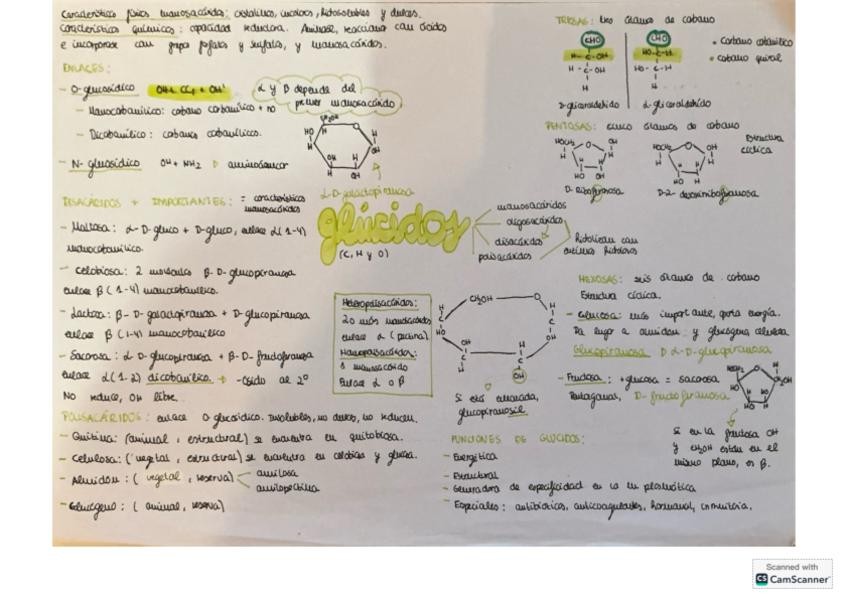 Características físicas monosacáridos: cristalinos, incoloros, hidrosolubles y dulces.
Características químicas: capacidad reductora. Aminarse, reaccionar con ácidos
e incorporarse con grupos fosfatos y sulfatos, y monosacáridos.
ENLACES:
- O-glucosídico
α y β depende del
primer monosacárido
- Monocarbonílico: carbono carbonílico + no
- Dicarbonílico: carbonos carbonílicos.
- N-glucosídico OH + NH2
α-D-galactopiranosa
DISACÁRIDOS + IMPORTANTES: = características
monosacáridos
- Maltosa: α-D-gluco + D-gluco, enlace α(1-4)
monocarbonílico.
- Celobiosa: 2 moléculas β-D-glucopiranosa
enlace β(1-4) monocarbonílico.
- Lactosa: β-D-galactopiranosa + D-glucopiranosa
enlace β(1-4) monocarbonílico
- Sacarosa: α D-glucopiranosa + β-D-fructofuranosa
enlace α(1-2) dicarbonílico
No reduce, OH libre.
POLISACÁRIDOS: enlace O glucosídico. Insolubles, no dulces, no reducen.
- Quitina: (animal, estructural) se encuentra en quitobiosa.
- Celulosa: (vegetal, estructural) se encuentra en celobiosa y glucosa.
- Almidón: (vegetal, reserva)
amilosa
amilopectina
- Glucógeno: (animal, reserva)
glúcidos
(C, H y O)
monosacáridos
oligosacáridos
disacáridos
polisacáridos
Hidrolizan con
Heteropolisacáridos:
2 o más monosacáridos
enlace α (pectina)
Homopolisacáridos:
1 monosacárido
enlace α o β
CH2OH
O
H
C
HO
OH
H
C
OH
Si está enlazada,
glucopiranosil
TRIOSAS: tres átomos de carbono
CHO
H - C - OH
H - C - OH
H
D-gliceraldehído
CHO
HO - C - H
HO - C - H
H
L-gliceraldehído
• carbono carbonílico
• carbono quiral
PENTOSAS: cinco átomos de carbono
Estructura
cíclica
D-ribofuranosa
D-2-desoxirribofuranosa
HEXOSAS: seis átomos de carbono
Estructura cíclica.
- Glucosa: más importante, aporta energía.
Da lugar a almidón y glucógeno, celulosa
Glucopiranosa α-D-glucopiranosa
- Fructosa: + glucosa = sacarosa
Pentagonal, D-fructofuranosa
Si en la fructosa OH
y CH2OH están en el
mismo plano, es β.
FUNCIONES DE GLÚCIDOS:
- Energética
- Estructural
- Generadora de especificidad en la m plasmática
- Especiales: antibióticos, anticoagulantes, hormonal, inmunitaria.
Scanned with
CS CamScanner